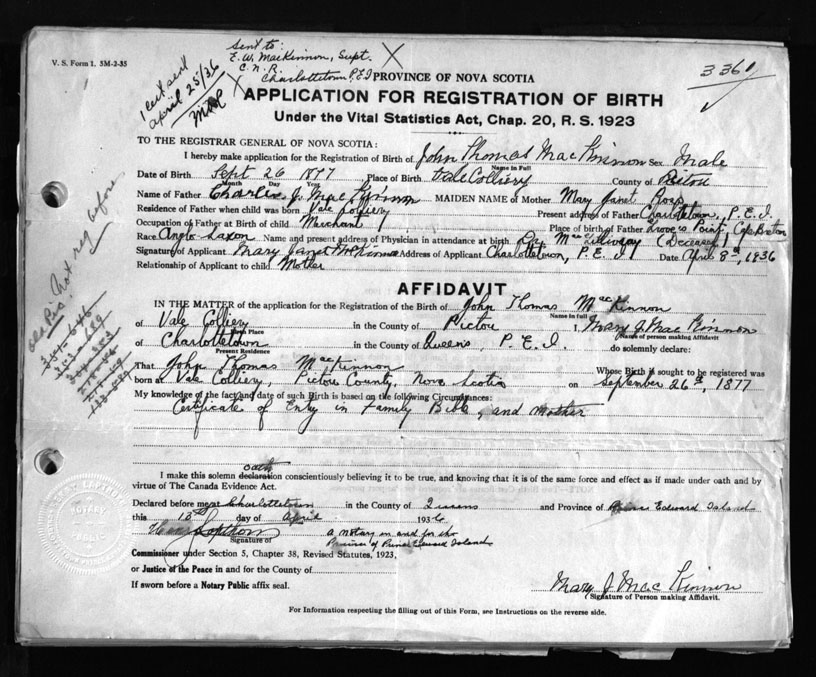 V. S. Form 1. 5M-2-35
Sent to:
E. W. MacKinnon, Supt.
C. N. R.
Charlottetown P.E.I
X
X
1 cert sent
april 25/36
3361
PROVINCE OF NOVA SCOTIA
APPLICATION FOR REGISTRATION OF BIRTH
Under the Vital Statistics Act, Chap. 20, R. S. 1923
TO THE REGISTRAR GENERAL OF NOVA SCOTIA:
I hereby make application for the Registration of Birth of John Thomas MacKinnon Sex Male
Name in Full
Date of Birth Sept 26 1877 Place of Birth Vale Colliery County of Pictou
Month Day Year
Name of Father Charles J. MacKinnon MAIDEN NAME of Mother Mary Janet Ross
Residence of Father when child was born Vale Colliery Present address of Father Charlottetown, P.E.I.
Occupation of Father at Birth of Merchant Place of birth of Father Cape Breton
Race Anglo Saxon Name and present address of Physician in attendance at birth (Deceased)
Signature of Applicant Mary Janet McKinnon Address of Applicant Charlottetown, P.E.I Date April 8th, 1936
Relationship of Applicant to child Mother
AFFIDAVIT
IN THE MATTER of the application for the Registration of the Birth of John Thomas MacKinnon
Name in full
of Vale Colliery in the County of Pictou I, Mary J. MacKinnon
Birth Place
Name of person making Affidavit
of Charlottetown in the County of Queens, P.E.I. do solemnly declare:
Present Residence
That John Thomas MacKinnon Whose Birth is sought to be registered was
born at Vale Colliery, Pictou County, Nova Scotia on September 26th, 1877
My knowledge of the fact and date of such Birth is based on the following Circumstances:
Certificate of Entry in Family Bible, and Mother
oath
I make this solemn declaration conscientiously believing it to be true, and knowing that it is of the same force and effect as if made under oath and by
virtue of The Canada Evidence Act.
Declared before me at Charlottetown in the County of Queens and Province of Prince Edward Island
this 13th day of April 1936
a notary in and for the
Province of Prince Edward Island
Signature of
Commissioner under Section 5, Chapter 38, Revised Statutes, 1923,
or Justice of the Peace in and for the County of
If sworn before a Notary Public affix seal.
Mary J MacKinnon
(Signature of Person making Affidavit.
For Information respecting the filling out of this Form, see Instructions on the reverse side.
not reg before